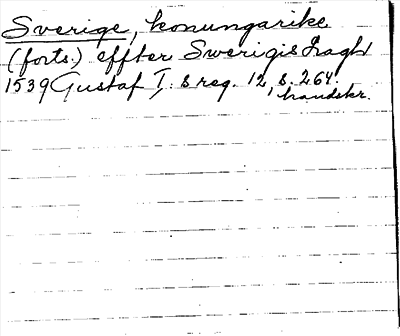 Sverige, konungarike
(forts.) effter Swerigis Lagh
1539 Gustaf I:s reg. 12, s. 264.
handskr.